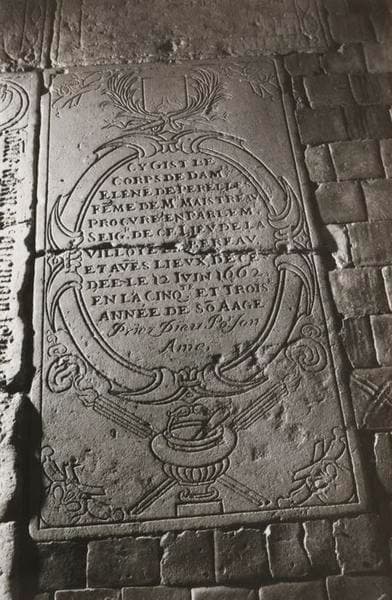 CY GIST LE
CORPS DE DAM
ELENE DE PERELLE
FEME DE Mᵉ MAISTRE
PROCVRE EN PARLEM
SEIGʳ DE CE LIEV DE LA
VILLOTE
ET AVES LIEVX DECE
DEE LE 12 IVIN 1662
EN LA CINQᵗᵉ ET TROIS
ANNEE DE SO AAGE
Priez Dieu Po son
Ame